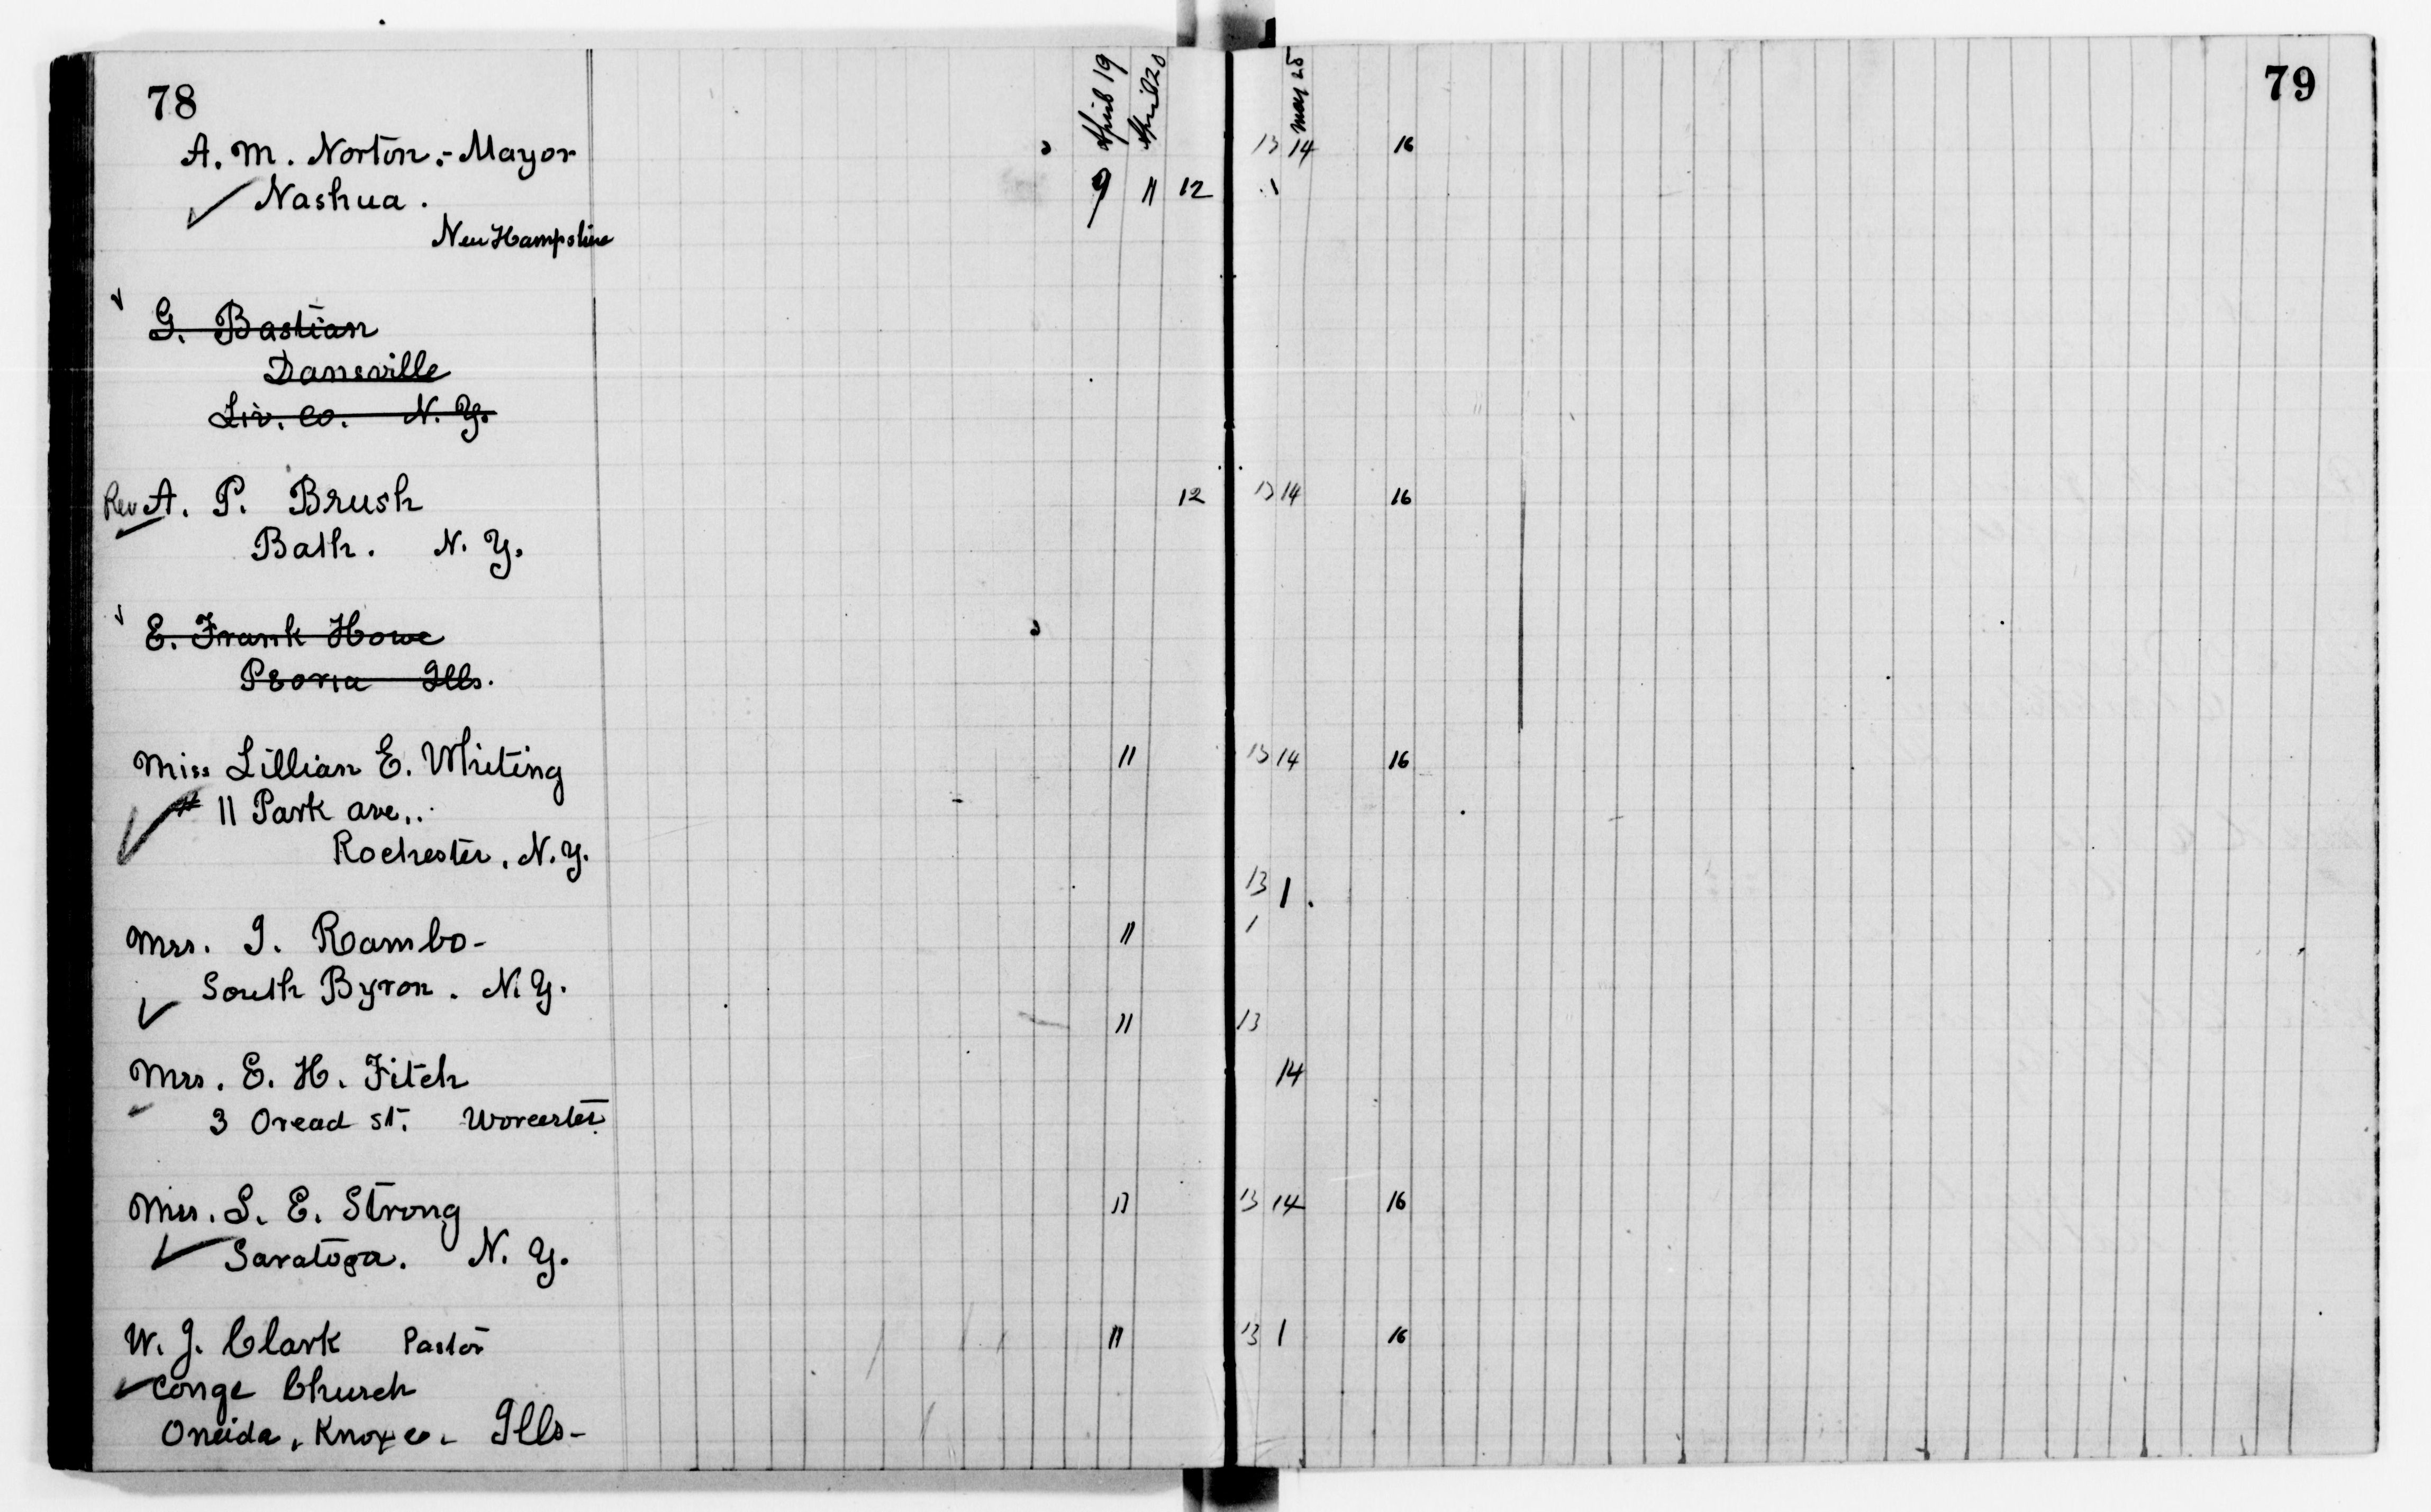 78
79
April 19
April 20
May 25
A. M. Norton,- Mayor 13 14 16
Nashua. 9 11 12 1
New Hampshire
G. Bastian
Dansville
Liv. Co. N. Y.
Rev A. P. Brush 12 13 14 16
Bath. N. Y.
E. Frank Howe
Peoria Ills.
Miss Lillian E. Whiting 11 13 14 16
# 11 Park ave.
Rochester, N.Y.
13 1
Mrs. I. Rambo- 11 1
South Byron. N.Y.
11 13
Mrs. E. H. Fitch 14
3 Oread St. Worcester
Mrs. S. E. Strong 11 13 14 16
Saratoga. N. Y.
W. J. Clark Pastor 11 13 1 16
Conge Church
Oneida, Knox co. Ills-